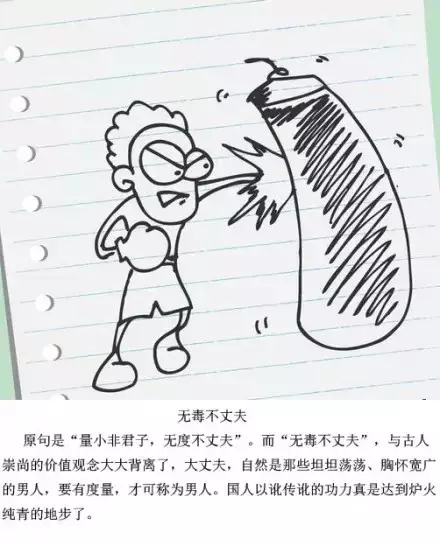 无毒不丈夫
原句是“量小非君子，无度不丈夫”。而“无毒不丈夫”，与古人
崇尚的价值观念大大背离了，大丈夫，自然是那些坦坦荡荡、胸怀宽广
的男人，要有度量，才可称为男人。国人以讹传讹的功力真是达到炉火
纯青的地步了。